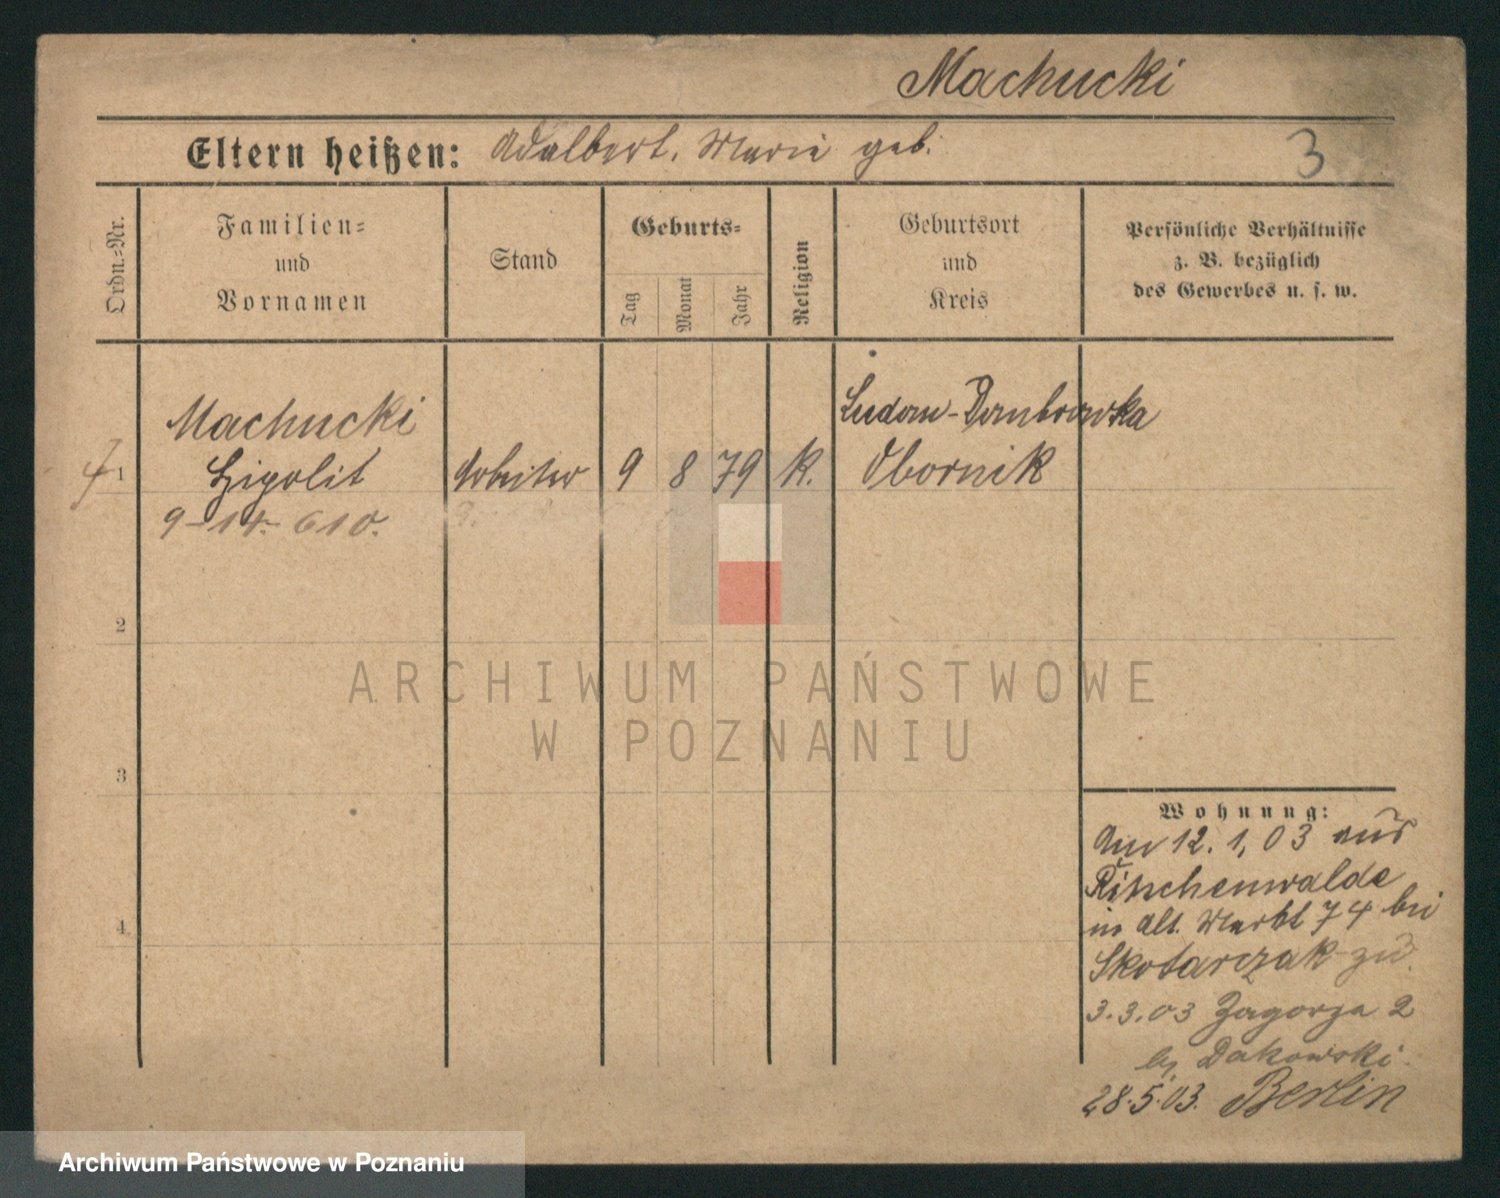 Machucki
Eltern heißen: Adalbert, Marie geb.
3
Ordn.=Nr.
Familien=
und
Vornamen
Stand
Geburts=
Tag
Monat
Jahr
Religion
Geburtsort
und
Kreis
Persönliche Verhältnisse
z. B. bezüglich
des Gewerbes u. s. w.
Machucki Ludom-Dombrowka
1 Hipolit Arbeiter 9 8 79 k. Obornik
9-14-610.
2
ARCHIWUM PAŃSTWOWE
W POZNANIU
3
4
Wohnung:
Am 12. 1, 03 aus
in Alt. Markt 74 bei
Skotarczak zu
3.3.03 Zagorze 2
Dakowski.
28.5.03. Berlin
Archiwum Państwowe w Poznaniu